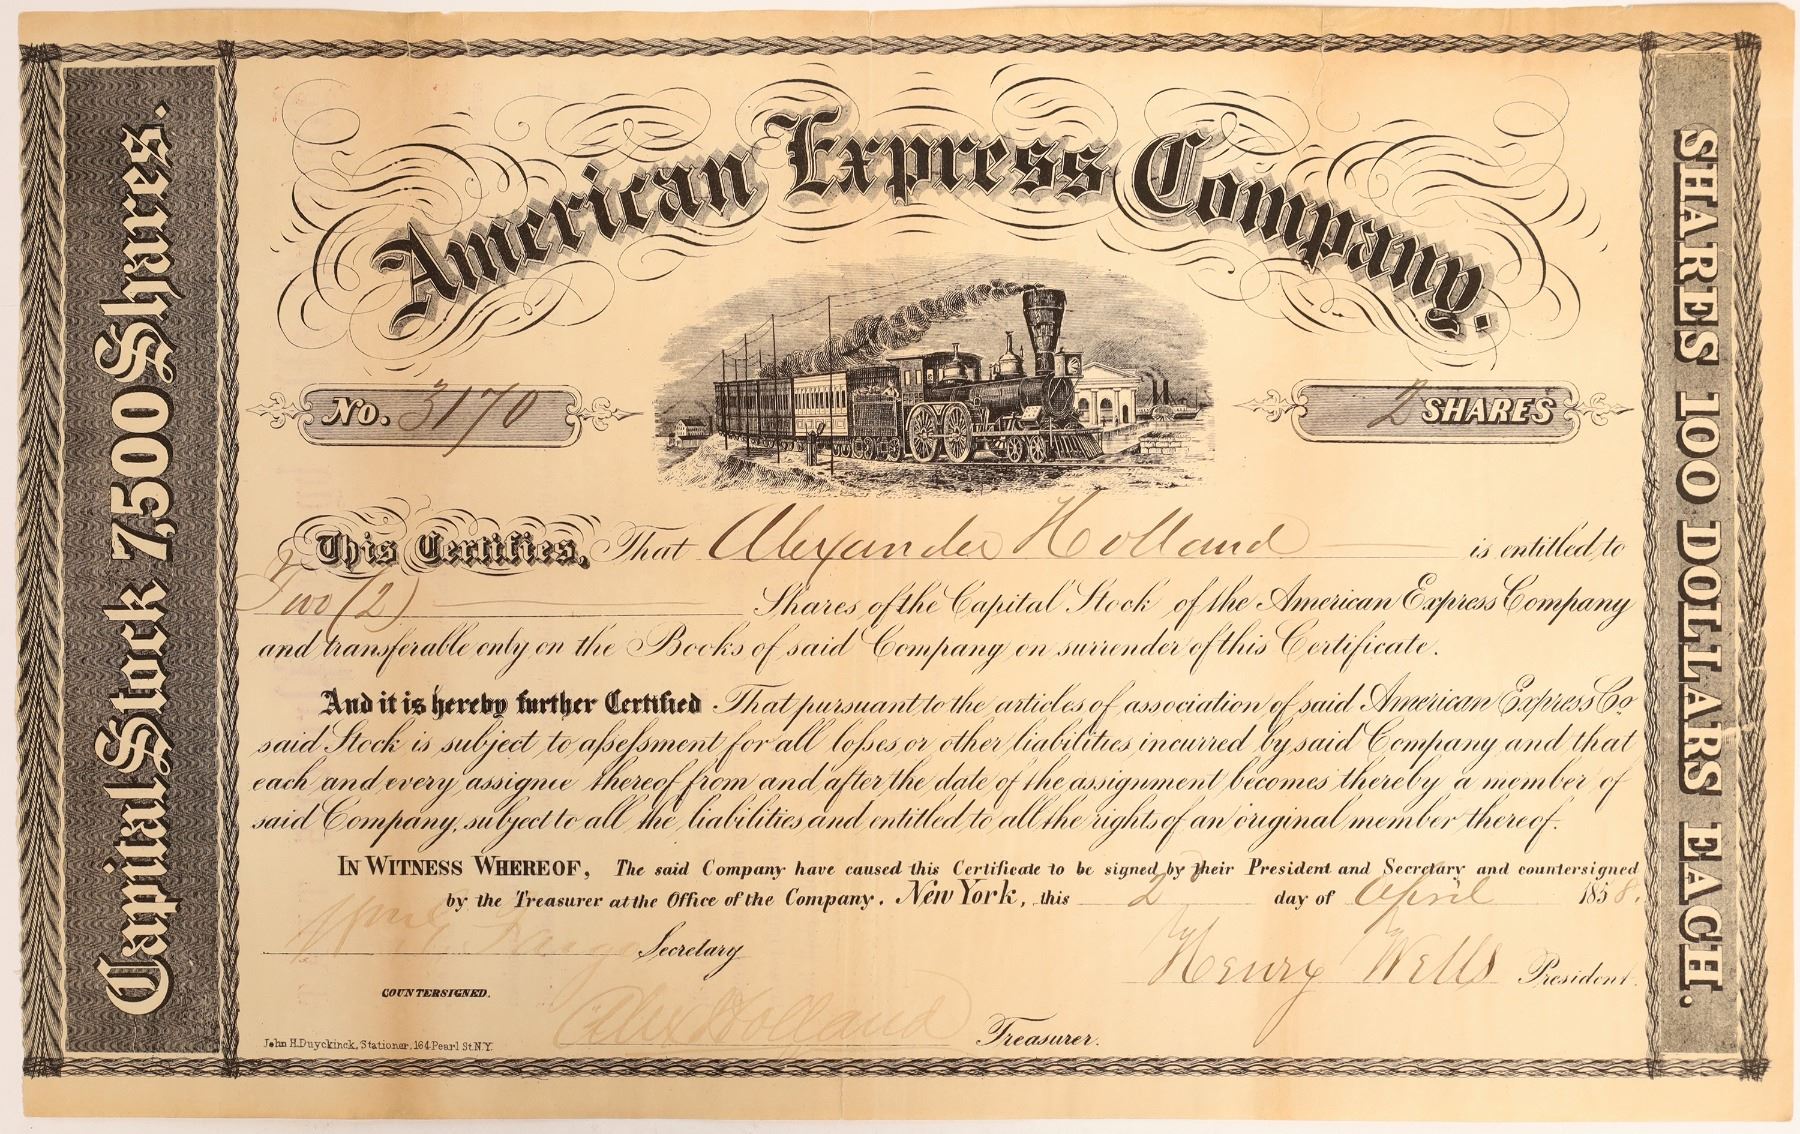 American Express Company.
Capital Stock 7,500 Shares.
No. 3170
2 SHARES
SHARES 100 DOLLARS EACH.
This Certifies, That Alexander Holland is entitled to
Two (2) Shares of the Capital Stock of the American Express Company
and transferable only on the Books of said Company on surrender of this Certificate.
And it is hereby further Certified That pursuant to the articles of association of said American Express Co
said Stock is subject to aſseſsment for all loſses or other liabilities incurred by said Company and that
each and every assignee thereof from and after the date of the assignment becomes thereby a member of
said Company, subject to all the liabilities and entitled to all the rights of an original member thereof.
IN WITNESS WHEREOF, The said Company have caused this Certificate to be signed by their President and Secretary and countersigned
by the Treasurer at the Office of the Company. New York, this 2 day of April 1858.
Wm G. Fargo Secretary
Henry Wells President.
COUNTERSIGNED.
Alex Holland Treasurer.
John H. Duyckinck, Stationer, 164 Pearl St N.Y.